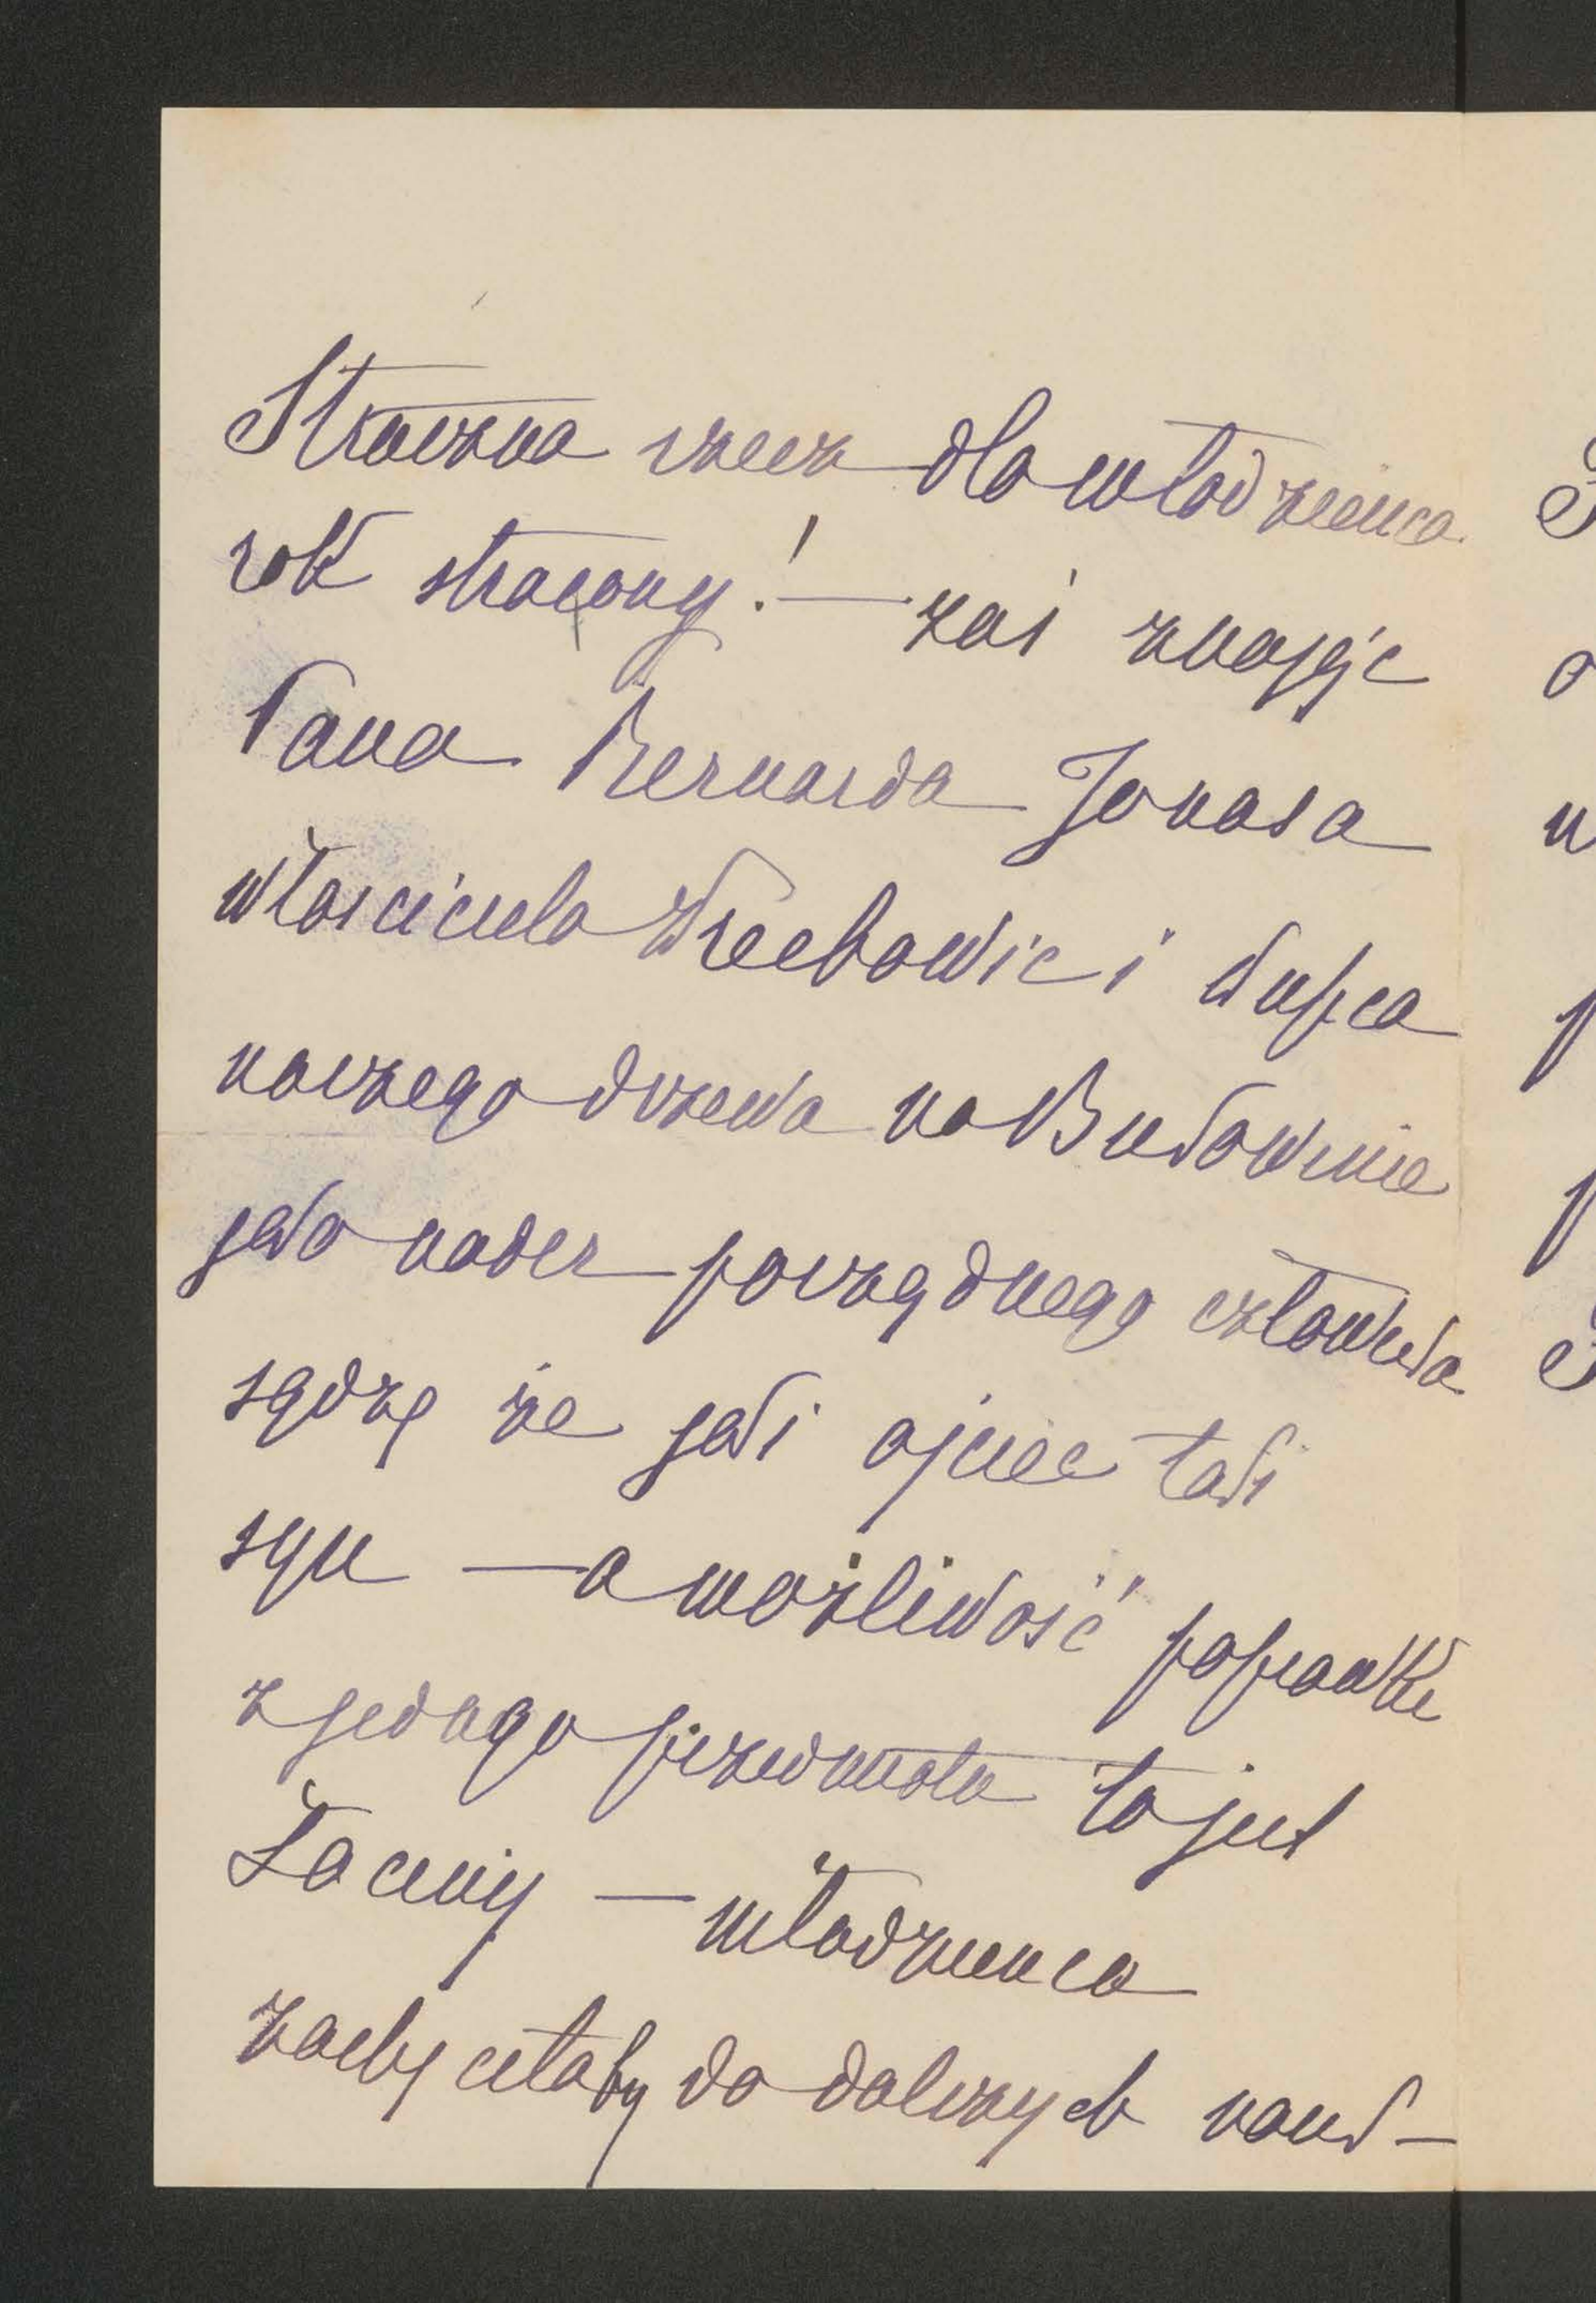 Straszna rzecz dla młodzieńca
rok stracony! — zaś znając
Pana Bernarda Jonasa
właściciela i kupca
naszego drzewa na Bukowinie
jako nader porządnego człowieka
sądzę że jaki ojciec taki
syn — a możliwość poprawki
z jednego przedmiotu to jest
Łaciny — młodzieńca
zachęciłaby do dalszych nauk —